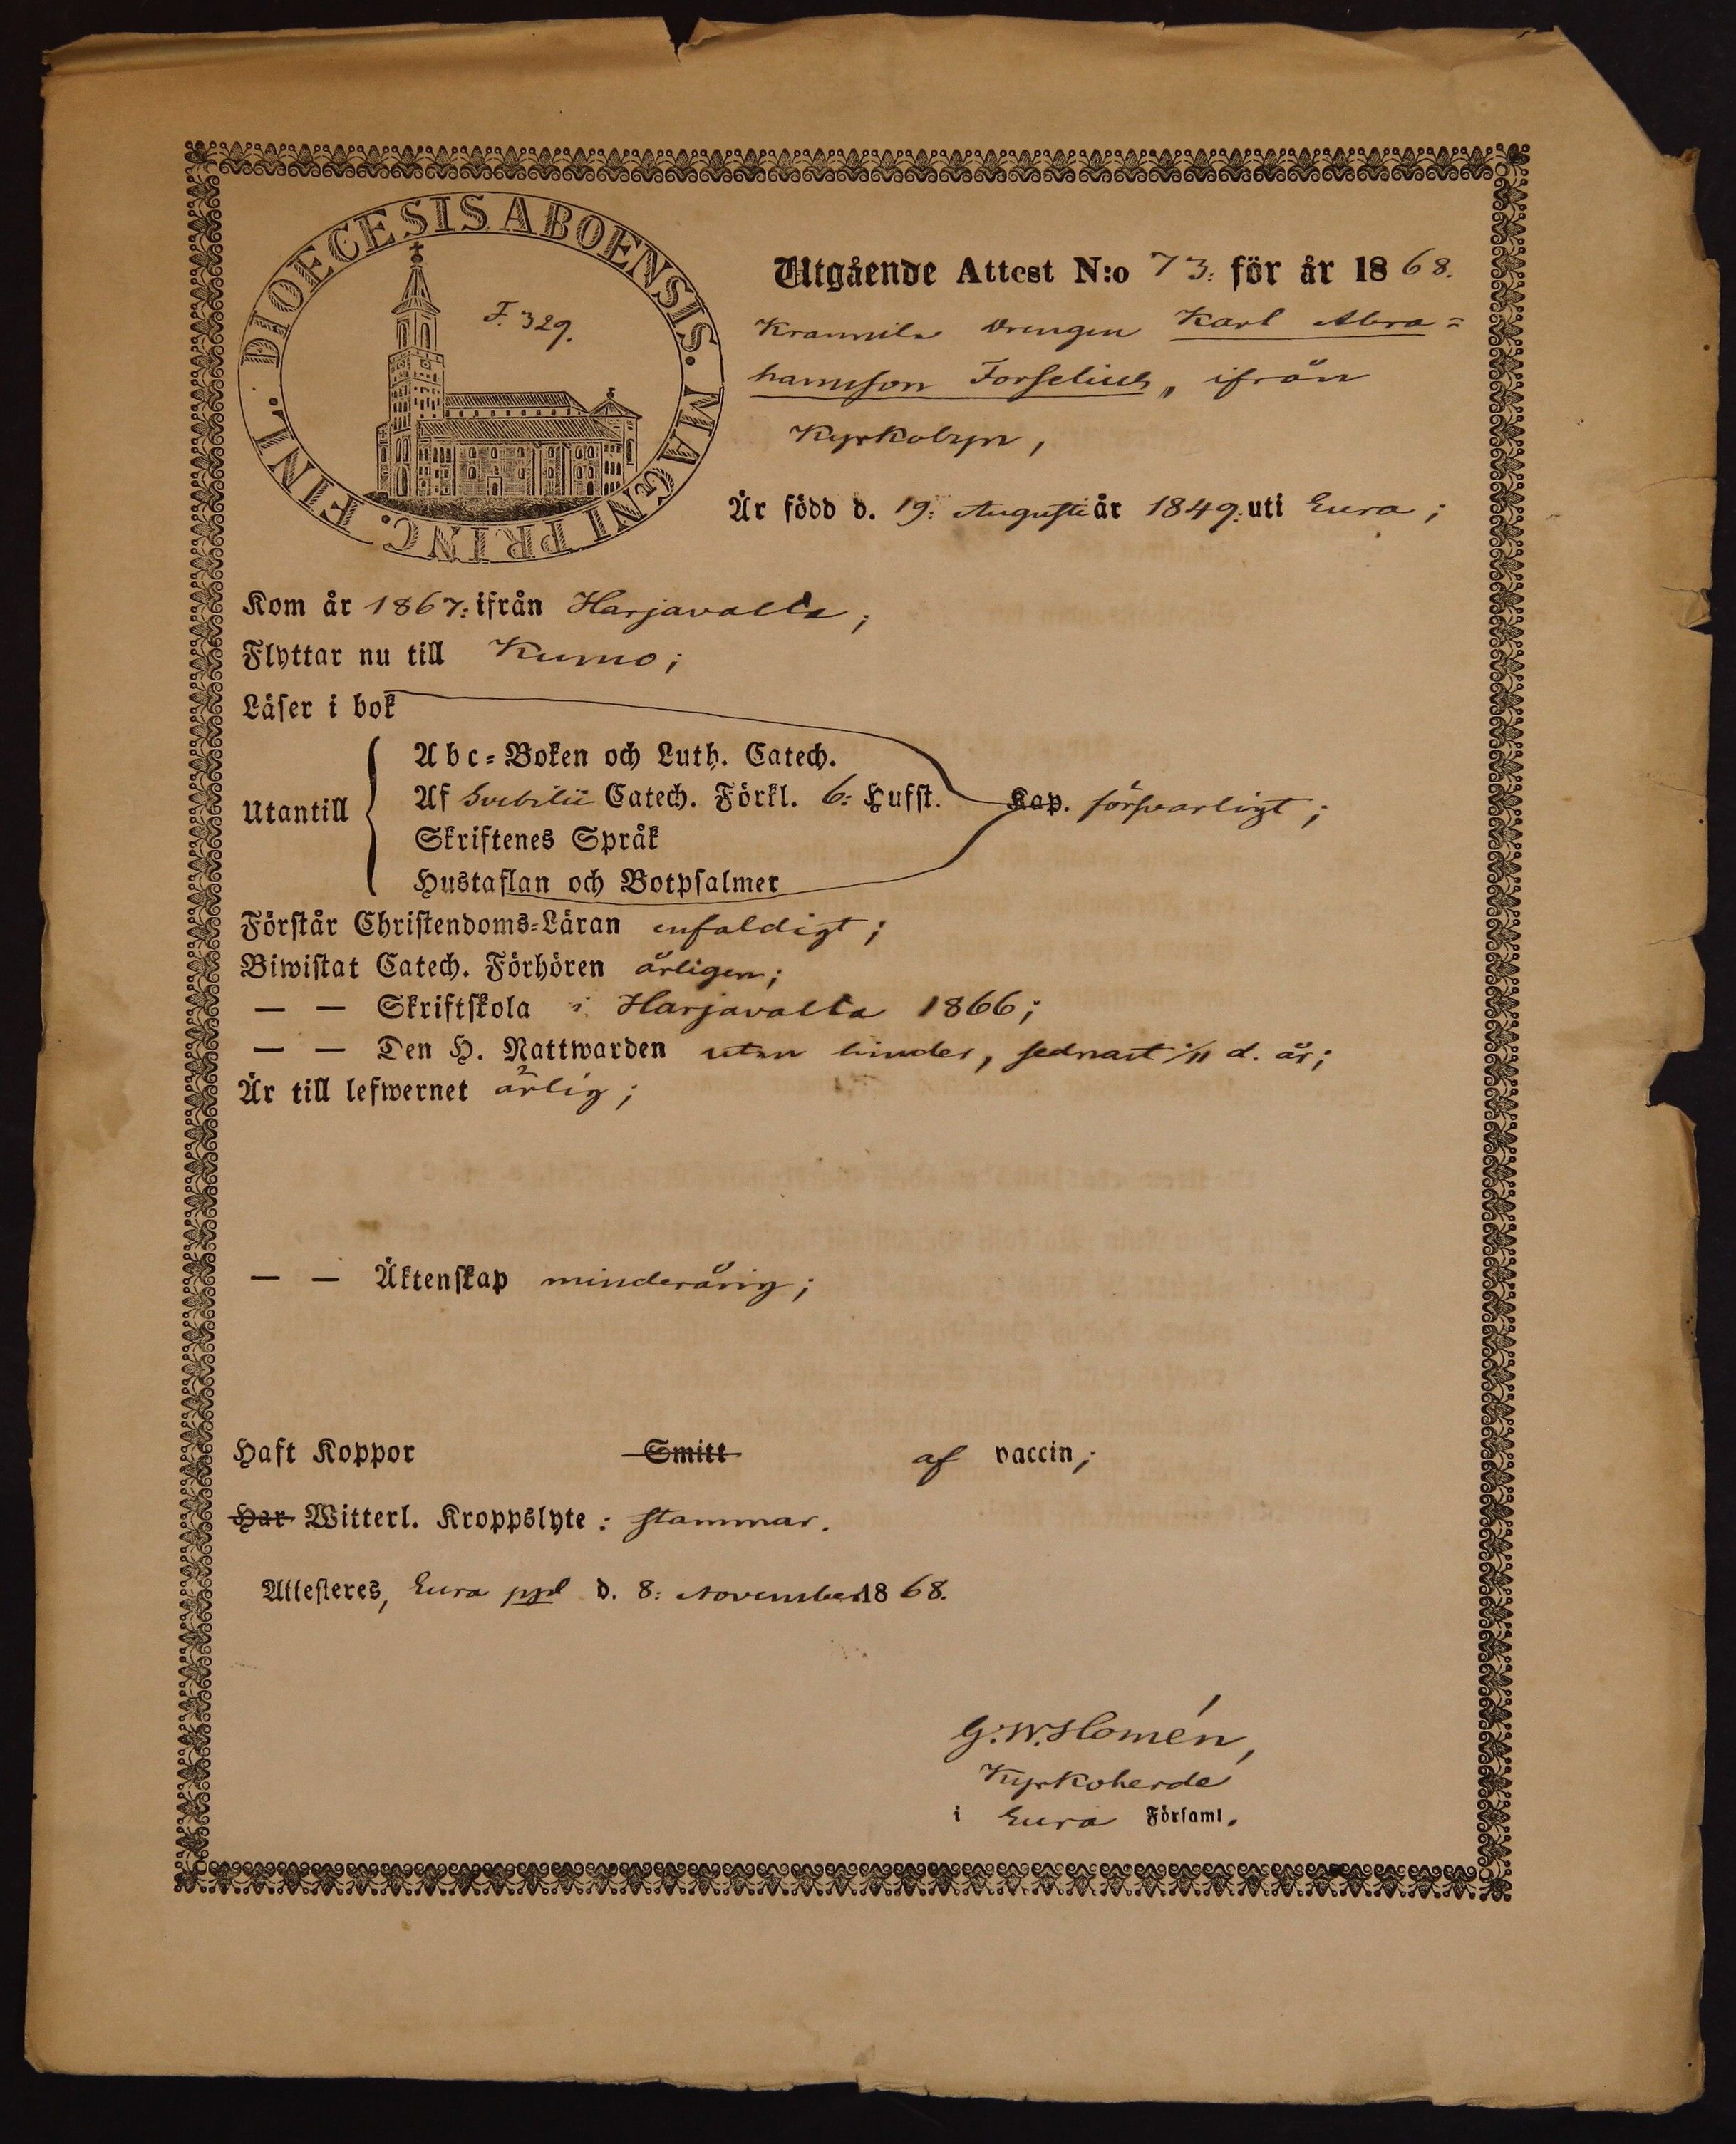 DIOECESIS ABOENSIS. MAGNI PRINC. FINL.
F. 329.
Utgående Attest N:o 73: för år 1868.
Drengen Karl Abra=
hamsson Forselius, ifrån
Kyrkobyn,
Är född d. 19: Augusti år 1849: uti Eura;
Kom år 1867: ifrån Harjavalta;
Flyttar nu till Kumo;
Läser i bok
Utantill
Abc=Boken och Luth. Catech.
Af Svebilii Catech. Förkl. 6: Hufst. Kap. försvarligt;
Skriftenes Språk
Hustaflan och Botpsalmer
Förstår Christendoms=Läran enfaldigt;
Biwistat Catech. Förhören årligen;
— — Skriftskola i Harjavalta 1866;
— — Den H. Nattwarden utan hinder, sednast 1/11 d. år;
Är till lefwernet ärlig;
— — Äktenskap minderårig;
Haft Koppor Smitt af vaccin;
Har Witterl. Kroppslyte: stammar.
Attesteres, Eura ppl d. 8: November 1868.
G. W. Homén,
Kyrkoherde
i Eura Församl.